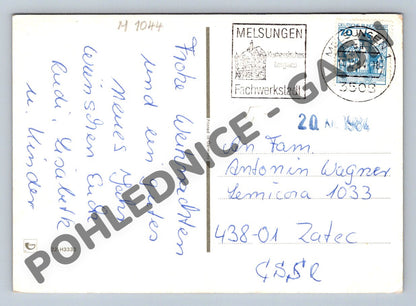 M 1044
MELSUNGEN
Fachwerkstadt
MELSUNGEN 1
3508
20
1984
Frohe Weihnachten
und ein gutes
neues Jahr
wünschen Euch
Rudi, Lisabeth
u. Kinder
An Fam.
Antonin Wagner
Lemicova 1033
438-01 Zatec
ČSSR
POHLEDNICE - GABY